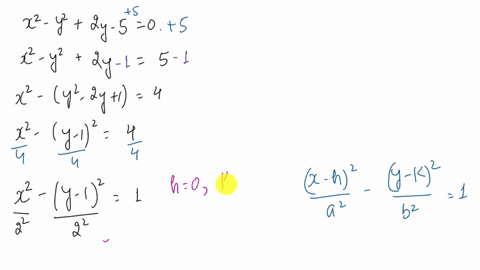 x² - y² + 2y - 5 +5 = 0 +5
x² - y² + 2y - 1 = 5 - 1
x² - (y² - 2y + 1) = 4
x²/4 - (y-1)²/4 = 4/4
x²/2² - (y-1)²/2² = 1
h=0,
(x-h)²/a² - (y-k)²/b² = 1